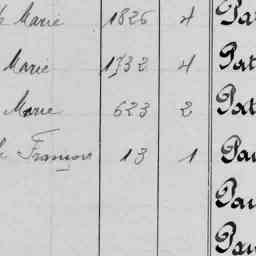 Marie 1826 4 Pat
Marie 1732 4 Pat
Marie 623 2 Pat
François 13 1 Pau
Pau
Pau